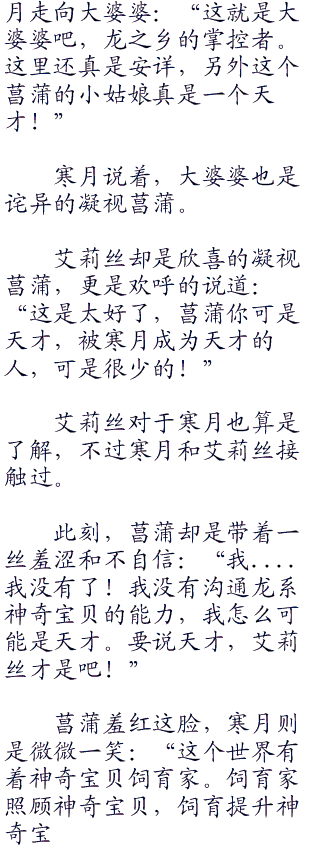 月走向大婆婆：“这就是大
婆婆吧，龙之乡的掌控者。
这里还真是安详，另外这个
菖蒲的小姑娘真是一个天
才！”
寒月说着，大婆婆也是
诧异的凝视菖蒲。
艾莉丝却是欣喜的凝视
菖蒲，更是欢呼的说道：
“这是太好了，菖蒲你可是
天才，被寒月成为天才的
人，可是很少的！”
艾莉丝对于寒月也算是
了解，不过寒月和艾莉丝接
触过。
此刻，菖蒲却是带着一
丝羞涩和不自信：“我....
我没有了！我没有沟通龙系
神奇宝贝的能力，我怎么可
能是天才。要说天才，艾莉
丝才是吧！”
菖蒲羞红这脸，寒月则
是微微一笑：“这个世界有
着神奇宝贝饲育家。饲育家
照顾神奇宝贝，饲育提升神
奇宝